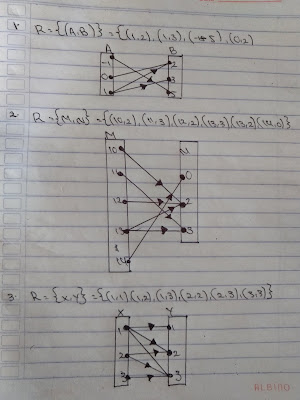 1. R = {(A,B)} = {(1,2), (1,3), (-1, 5), (0,2)
A B
-1 2
0 3
1 5
2 R = {M,N} = {(10,2), (11,3) (12,2) (13,3) (13,2) (14,0)
M N
10
0
11
12 2
13 3
14
3. R = {X,Y} = {(1,1) (1,2), (1,3), (2,2), (2,3), (3,3)}
X Y
1 1
2 2
3 3
ALBINO